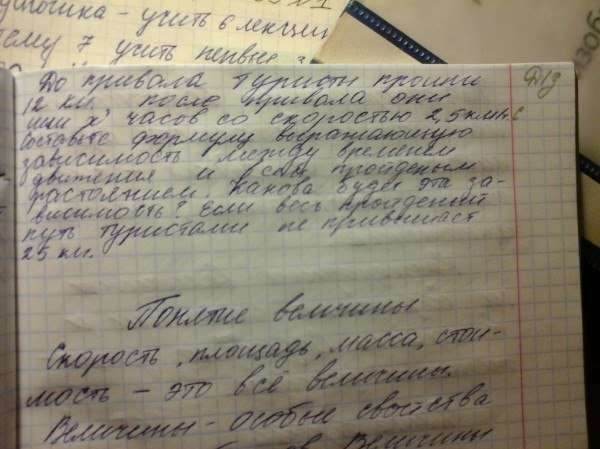 учить 6 лекции
7 учить первые
изоб
Д/з
До привала туристы прошли
12 км. после привала они
шли х часов со скоростью 2,5 км/ч
составьте формулу выражающую
зависимость между временем
движения и всем пройденым
растоянием. Какова будет эта за-
висимость? Если весь пройденый
путь туристами не привышает
25 км.
Понятие величины
Скорость, площадь, масса, стои-
мость – это всё величины.
Величины – особые свойства
Величины